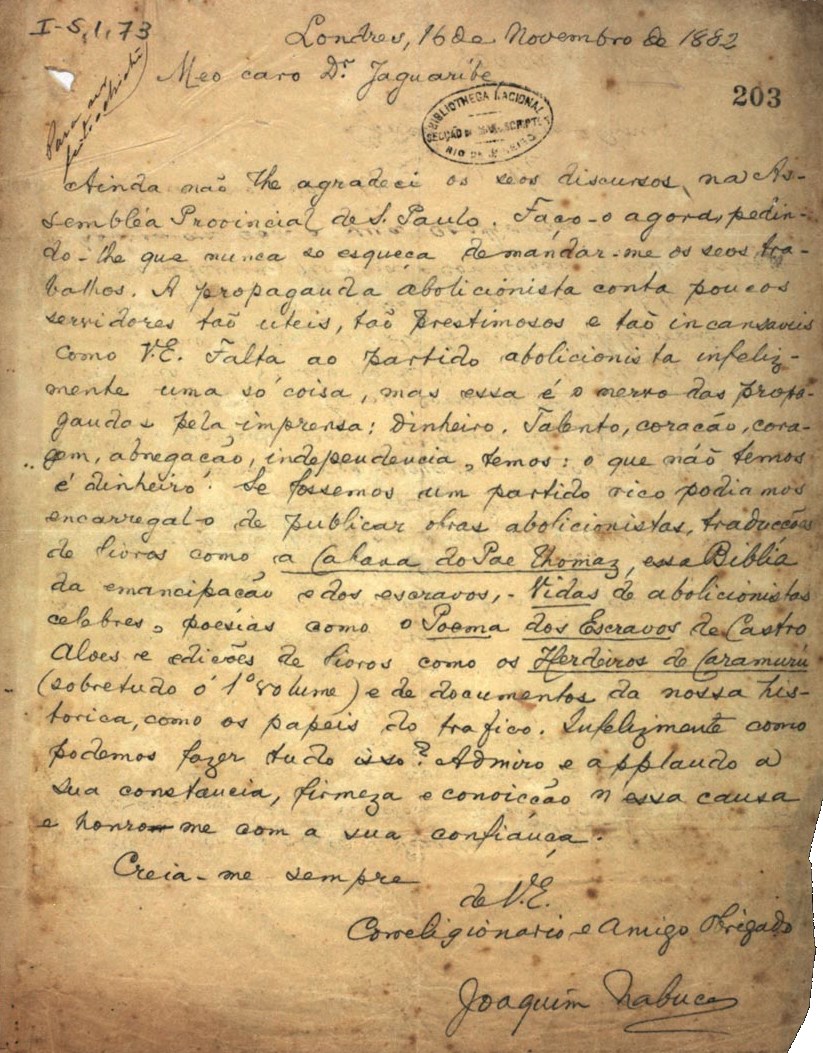 I-5,1,73
Londres, 16 de Novembro de 1882
Meo caro Dr. Jaguaribe
203
BIBLIOTHECA NACIONAL
SECÇÃO DE MANUSCRIPTOS
RIO DE JANEIRO
Para seu
Ainda não lhe agradeci os seos discursos na As-
sembléa Provincial de S. Paulo. Faço-o agora, pedin-
do-lhe que nunca se esqueça de mandar-me os seos tra-
balhos. A propaganda abolicionista conta poucos
servidores taõ uteis, taõ prestimosos e taõ incansaveis
como V.E. Falta ao partido abolicionista infeliz-
mente uma só coisa, mas essa é o nervo das propa-
gandas pela imprensa: dinheiro. Talento, coracão, cora-
gem, abnegacão, independencia, temos: o que não temos
é dinheiro. Se fossemos um partido rico podiamos
encarregal-o de publicar obras abolicionistas, traducções
de livros como a Cabana do Pae Thomaz, essa Biblia
da emancipacão e dos escravos, - Vidas de abolicionistas
celebres, poesias como o Poema dos Escravos de Castro
Alves e edicões de livros como os Herdeiros de Caramurú
(sobretudo o 1º volume) e de documentos da nossa his-
torica, como os papeis do trafico. Infelizmente como
podemos fazer tudo isso? Admiro e applaudo a
sua constancia, firmeza e conviccão n'essa causa
e honro-me com a sua confiança.
Creia-me sempre
de V.E.
Correligionario e Amigo Obrigado
Joaquim Nabuco